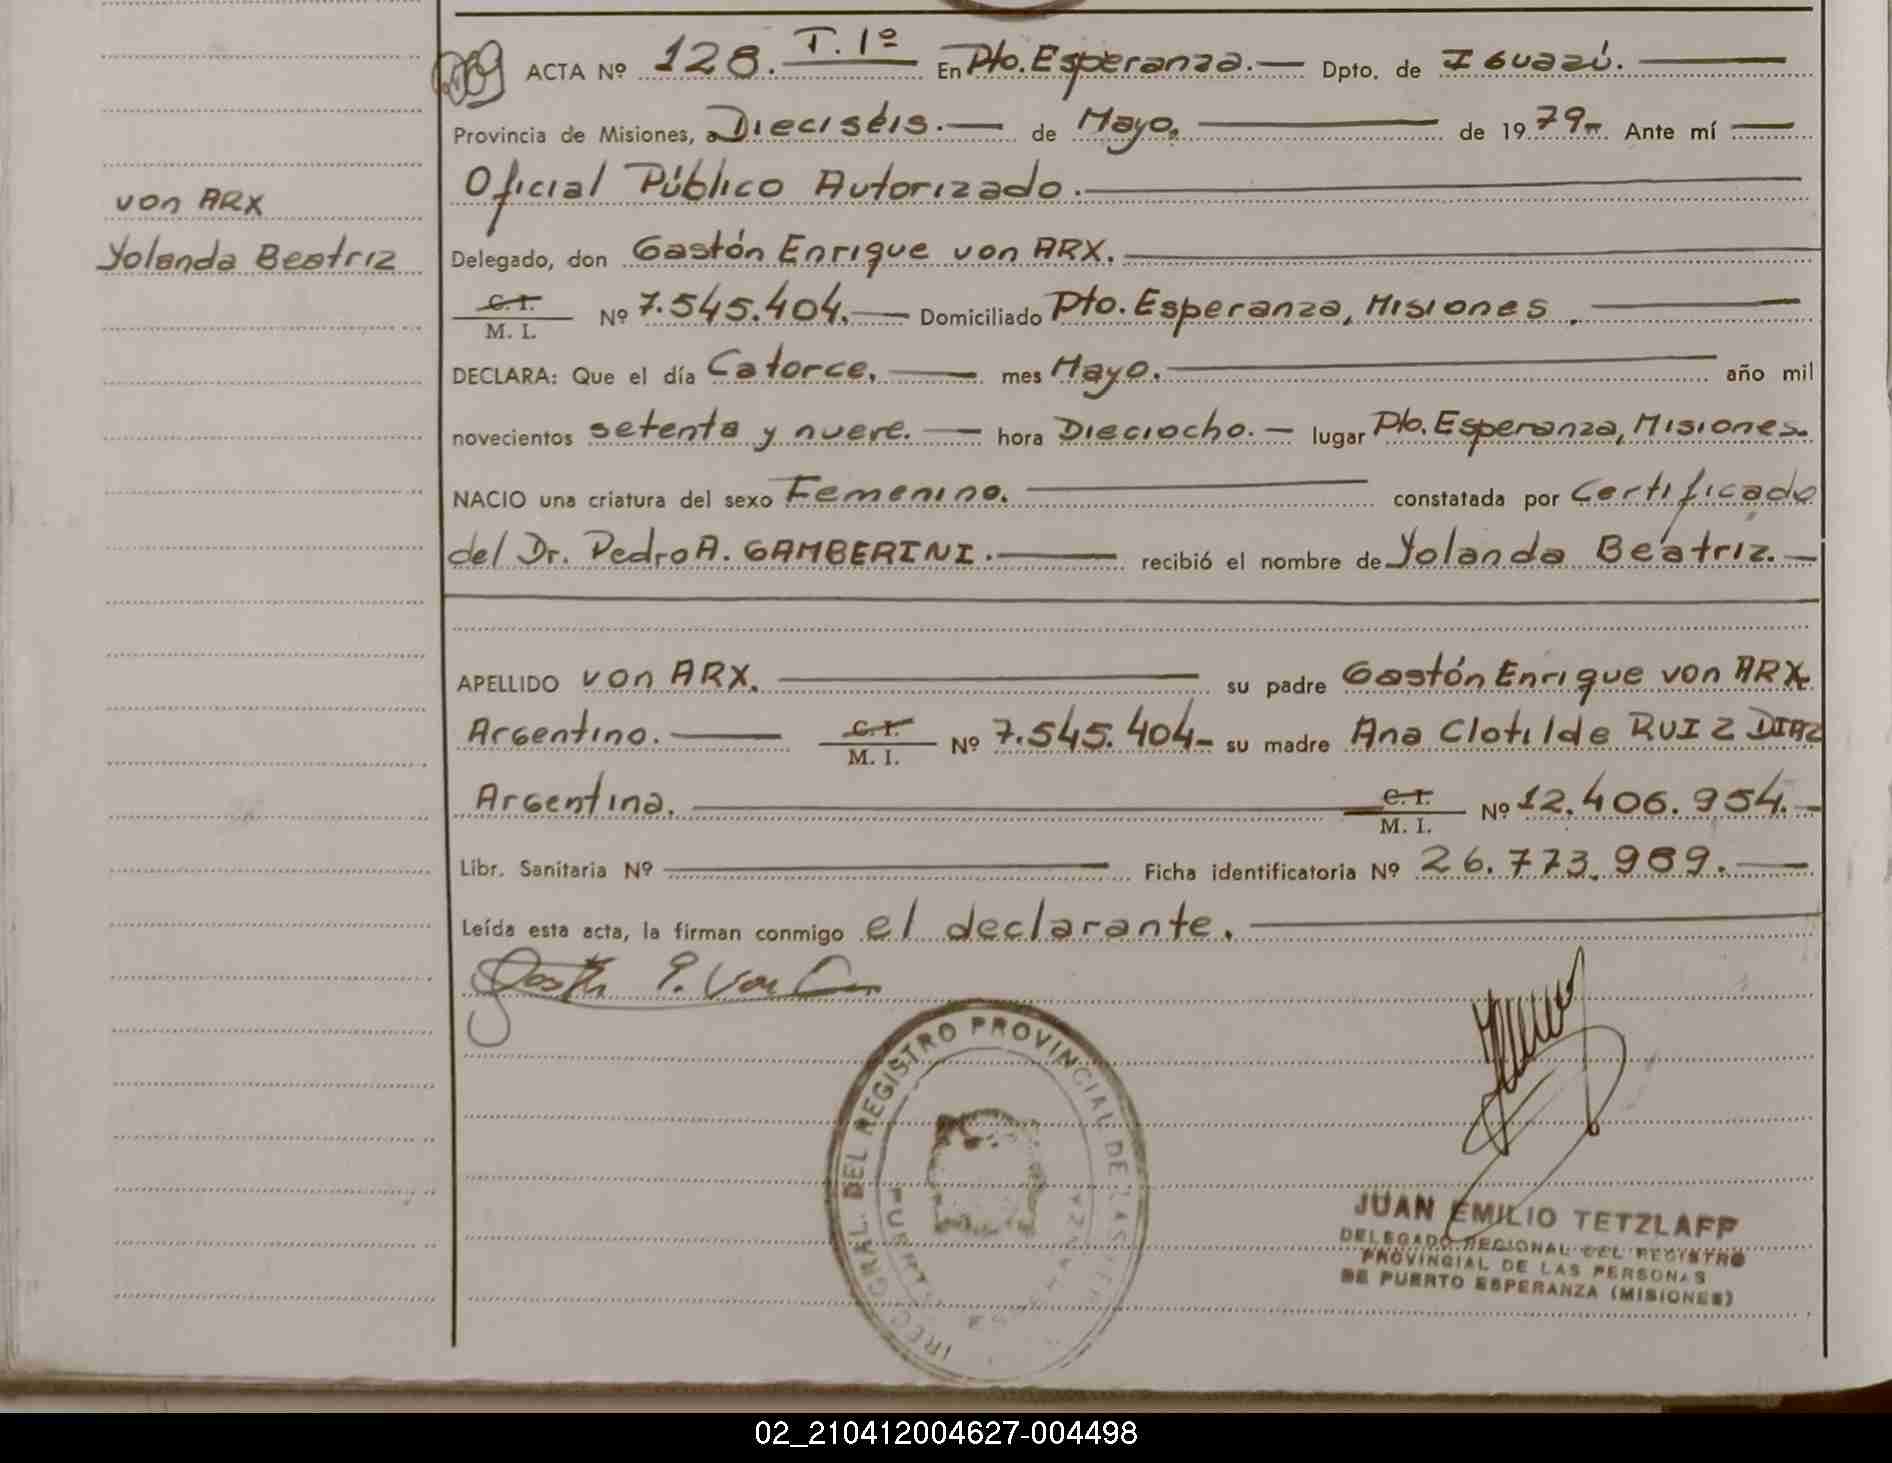 ACTA Nº 128. T. 1º En Pto. Esperanza. Dpto. de Iguazú.
Provincia de Misiones, a Dieciséis. de Mayo. de 1979. Ante mí
Oficial Público Autorizado.
von ARX
Yolanda Beatriz
Delegado, don Gastón Enrique von ARX.
C. I.
M. I. Nº 7.545.404. Domiciliado Pto. Esperanza, Misiones.
DECLARA: Que el día Catorce. mes Mayo. año mil
novecientos setenta y nueve. hora Dieciocho. lugar Pto. Esperanza, Misiones.
NACIO una criatura del sexo Femenino. constatada por Certificado
del Dr. Pedro A. GAMBERINI. recibió el nombre de Yolanda Beatriz.
APELLIDO von ARX. su padre Gastón Enrique von ARX
Argentino. C. I.
M. I. Nº 7.545.404- su madre Ana Clotilde RUIZ DIAZ
Argentina. C. I.
M. I. Nº 12.406.954.-
Libr. Sanitaria Nº Ficha identificatoria Nº 26.773.989.
Leída esta acta, la firman conmigo el declarante.
GRAL. DEL REGISTRO PROVINCIAL DE LAS
JUAN EMILIO TETZLAFF
DELEGADO REGIONAL DEL REGISTRO
PROVINCIAL DE LAS PERSONAS
DE PUERTO ESPERANZA (MISIONES)
02_210412004627-004498